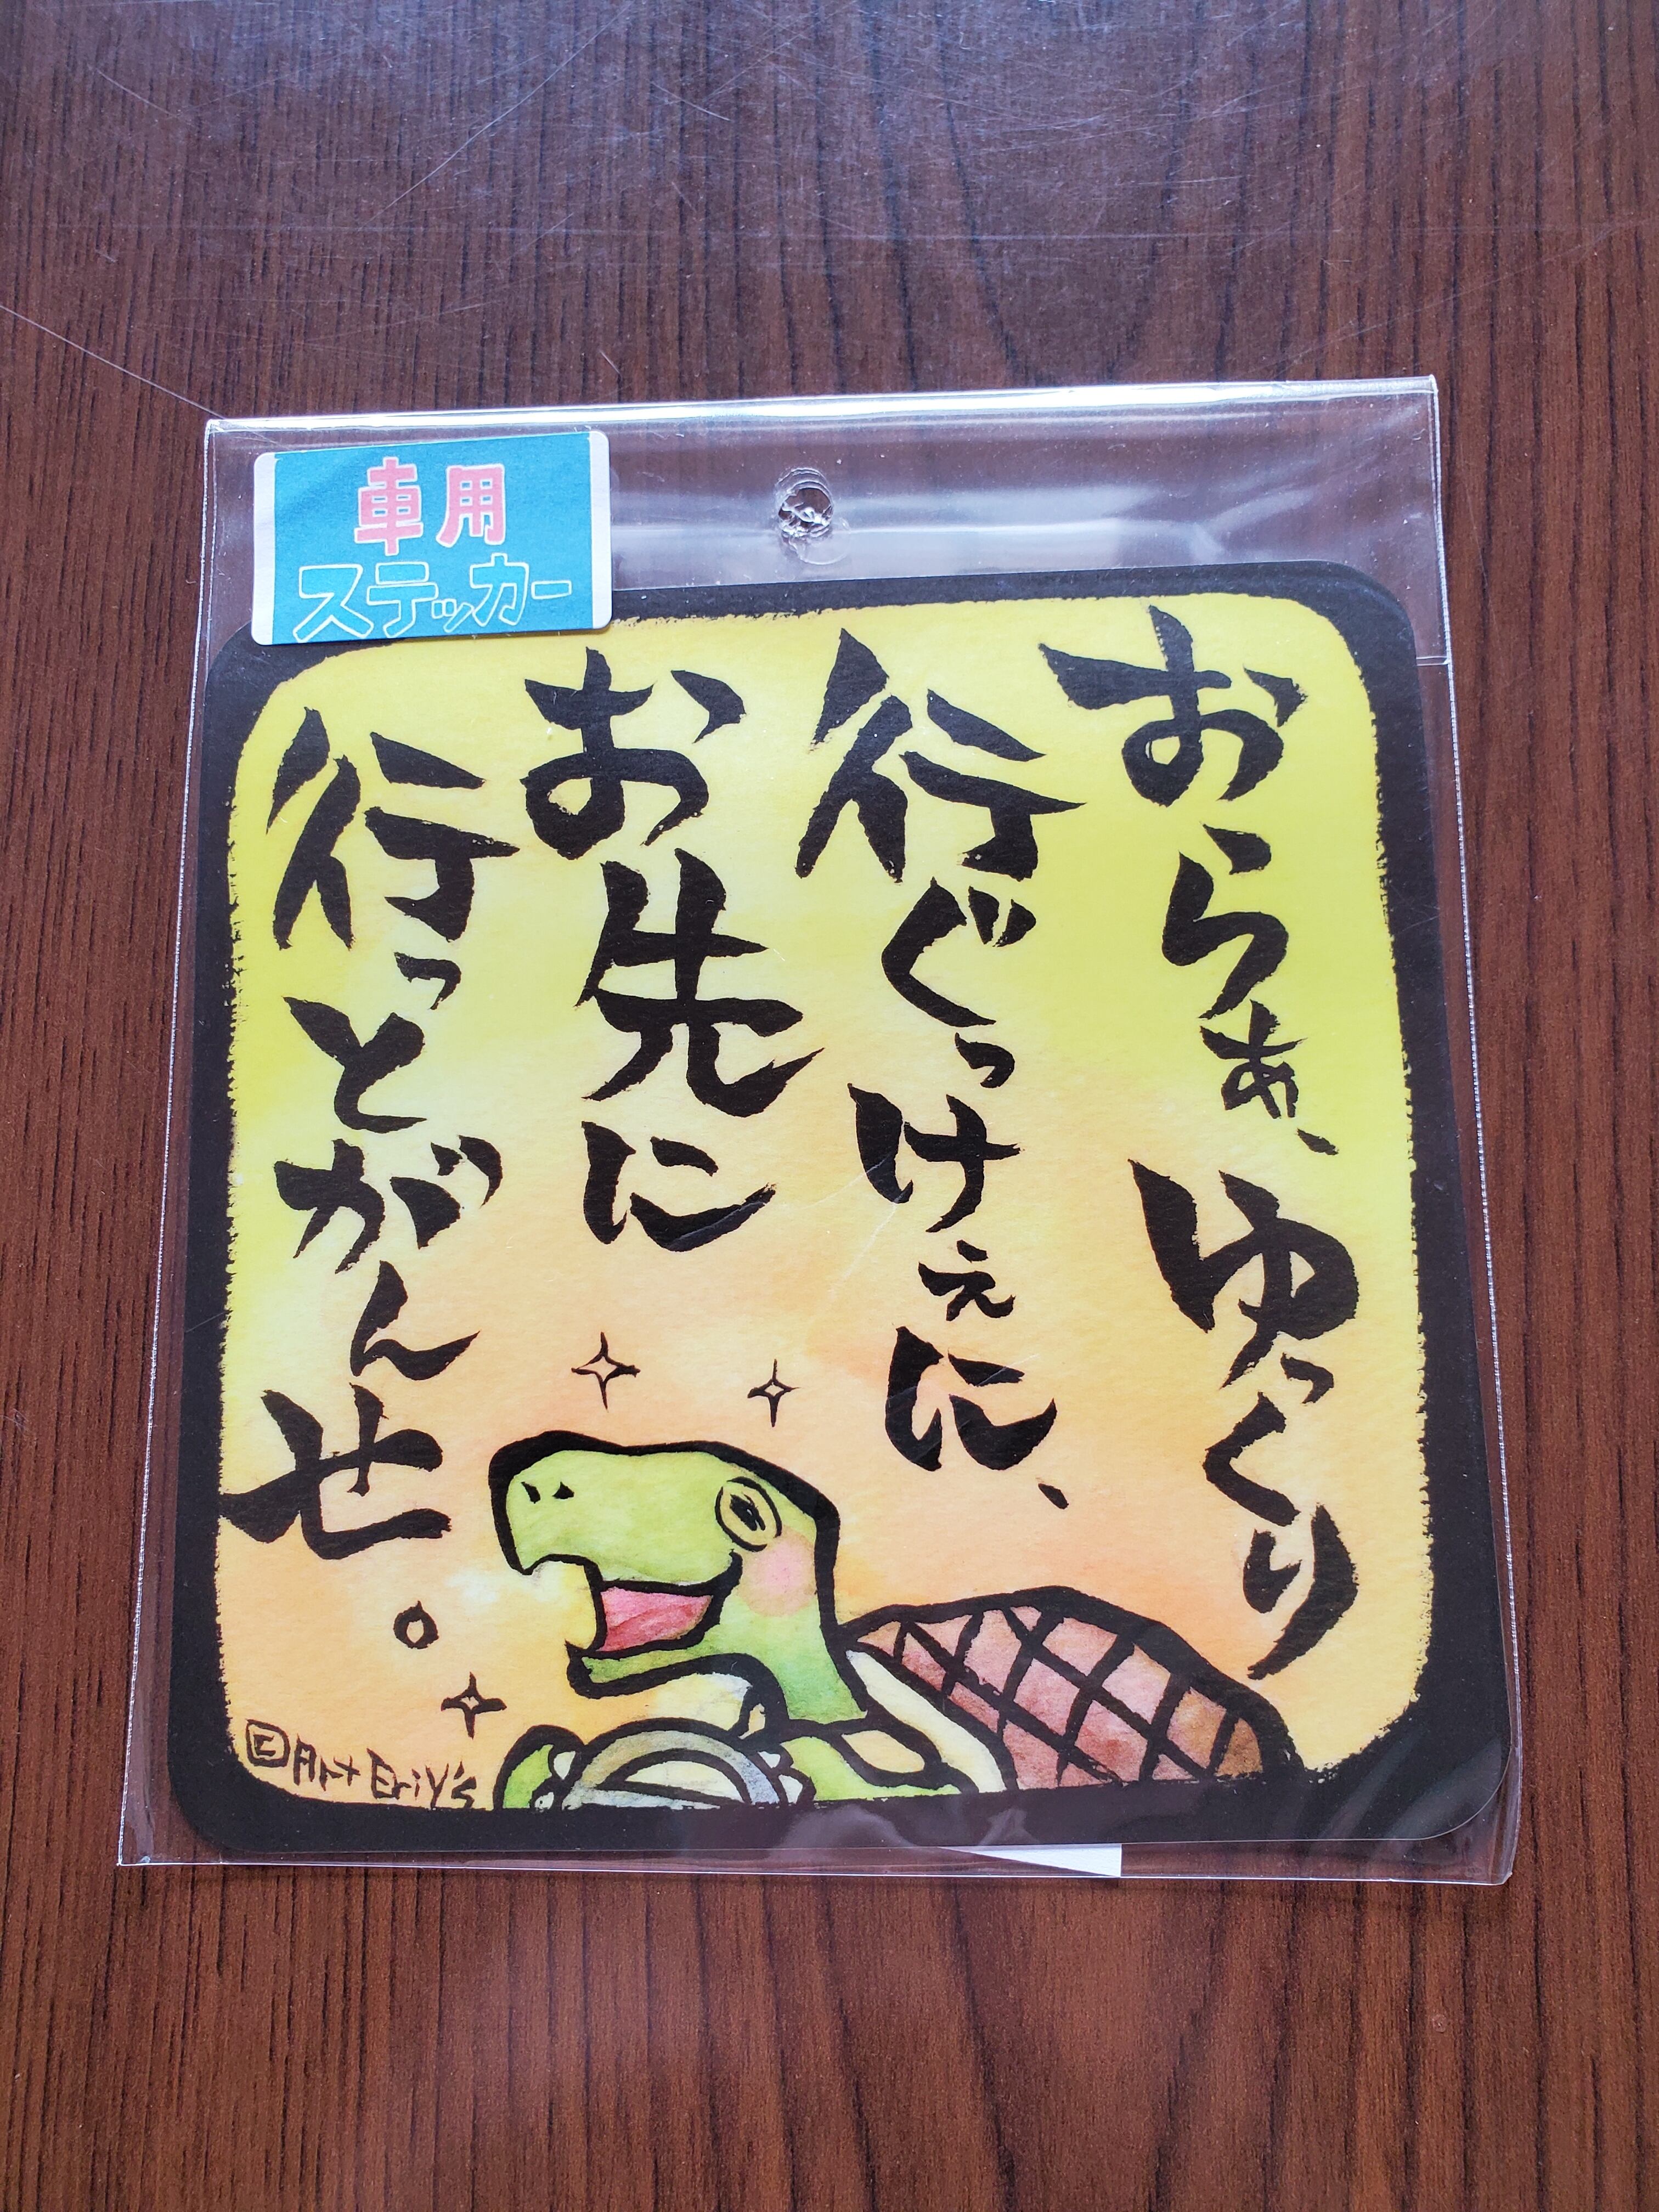 車用
ステッカー
おらぁ、ゆっくり
行ぐっけぇに、
お先に
行っとがんせ。
©Art Eriy's